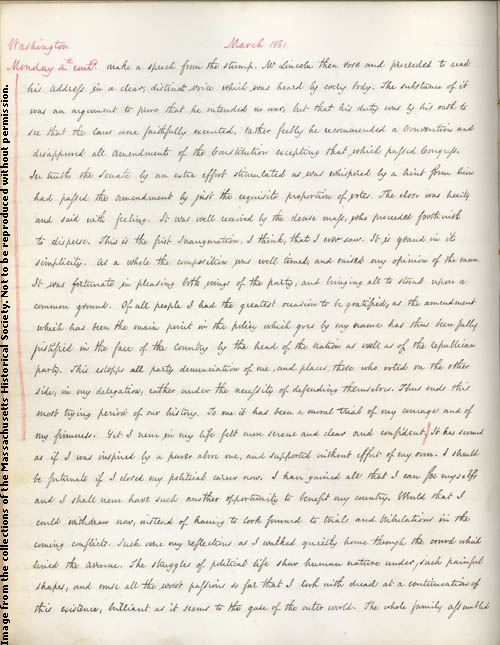 Image from the collections of the Massachusetts Historical Society. Not to be reproduced without permission.
Washington March 1861
Monday 4th contd. make a speech from the stump. Mr Lincoln then rose and proceeded to read
his address in a clear, distinct voice which was heard by every body. The substance of it
was an argument to prove that he intended no war, but that his duty was by his oath to
see that the laws were faithfully executed, rather feebly he recommended a Convention and
disapproved all amendments of the Constitution excepting that, which passed Congress.
In truth the Senate by an extra effort stimulated as was whispered by a hint from him
had passed the amendment by just the requisite proportion of votes. The close was hearty
and said with feeling. It was well received by the dense mass, who proceeded forthwith
to disperse. This is the first Inauguration, I think, that I ever saw. It is grand in its
simplicity. As a whole the composition was well timed, and raised my opinion of the man.
It was fortunate in pleasing both wings of the party, and bringing all to stand upon a
common ground. Of all people I had the greatest occasion to be gratified, as the amendment
which has been the main point in the policy which goes by my name has thus been fully
justified in the face of the country by the head of the nation as well as of the republican
party. This estopps all party denunciation of me, and places those who voted on the other
side, in my delegation, rather under the necessity of defending themselves. Thus ends this
most trying period of our history. To me it has been a moral trial of my courage and of
my firmness. Yet I never in my life felt more serene and clear and confident. It has seemed
as if I was inspired by a power above me, and supported without effort of my own. I should
be fortunate if I closed my political career now. I have gained all that I can for myself
and I shall never have such another opportunity to benefit my country. Would that I
could withdraw now, instead of having to look forward to trial and tribulations in the
coming conflicts. Such were my reflections as I walked quietly home through the crowd which
lined the avenue. The struggles of political life show human nature under, such painful
shapes, and rouse all the worst passions so far that I look with dread at a continuation of
this existence, brilliant as it seems to the gaze of the outer world. The whole family assembled